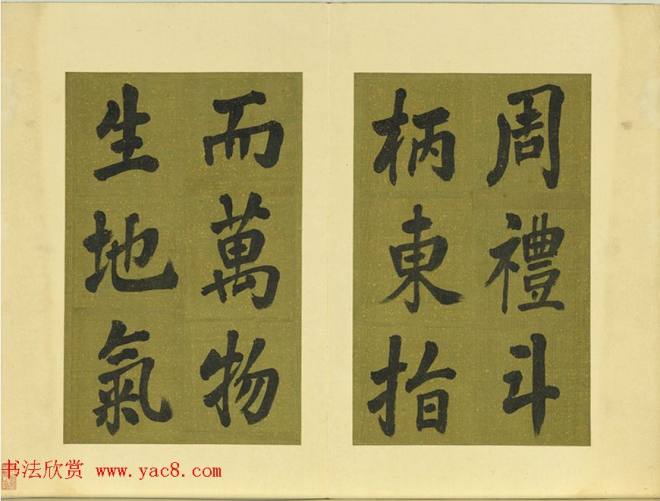 周禮斗
柄東指
而萬物
生地氣
书法欣赏 www.yac8.com